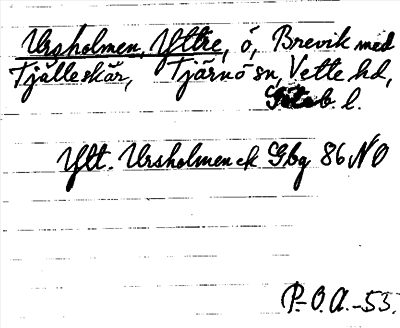 Ursholmen, Yttre, ö, Brevik med
Tjälleskär, Tjärnö sn, Vette hd,
Göteb. l.
Ytt. Ursholmen ek Gbg 86 NO
P.-O.A.-53.